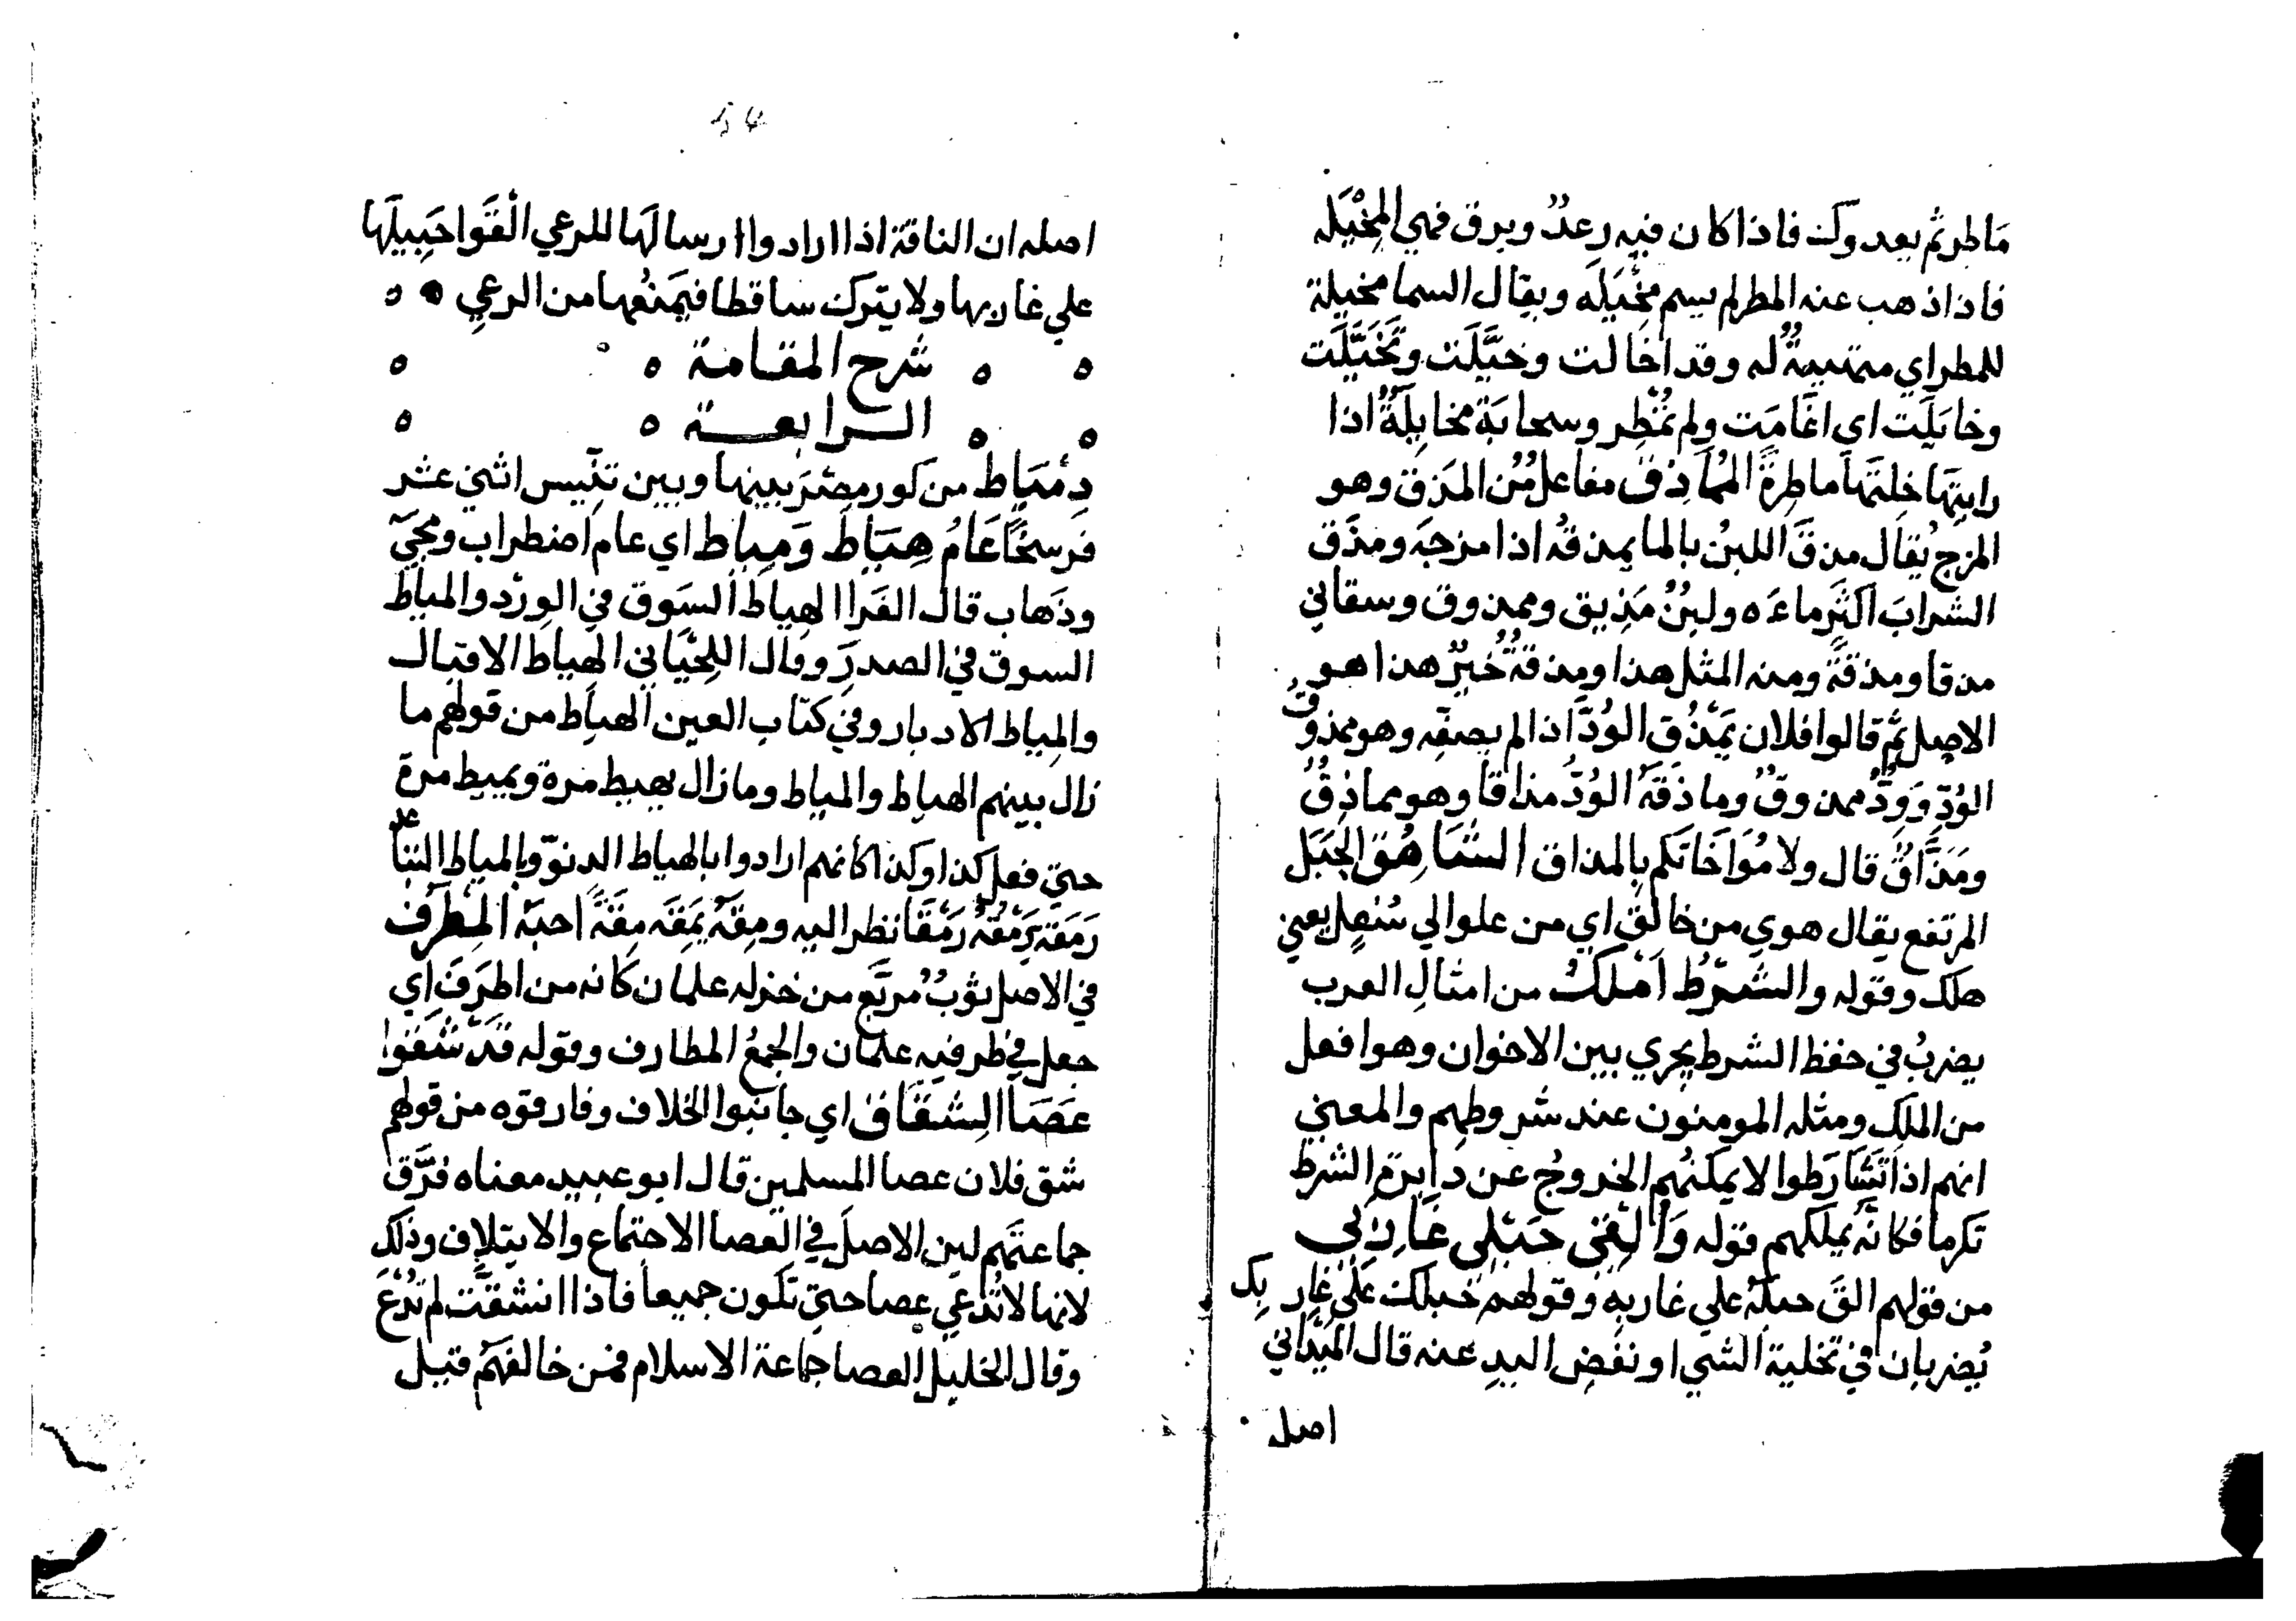 ما طر ثم بعد وكت فاذا كان فيه رعد وبرق فهي المخيله
فاذا ذهب عنه المطر لم يسم مخيله ويقال السما مخيلة
للمطر اي متهيية له وقد اخالت وخيَّلَت وتَخَيَّلَت
وخايَلَت اي اغامَت ولم تُمْطِر وسحابَة مخايِلَةٌ اذا
رايتها خلتَها ماطِرةً المُمَاذِق مفاعل من المذق وهو
المزج يُقال مذقَ اللبنُ بالما يمذقُه اذا مزجَه ومذَق
الشرابَ اكثَر ماءَه ولبنٌ مَذِيق وممذوق وسقاني
مذقا ومذقَةً ومنه المثل هذا ومذقةٌ خُبِرٌ هذا هو
الاصل ثم قالوا فلان يَمْذُق الوُدَّ اذا لم يصفِه وهو مَمذوقُ
الوُدِّ وَوِدٌّ ممذوقٌ وماذَقَهُ الوُدَّ مذاقًا وهو مماذِقٌ
ومَذَّاقٌ قال ولا مُوَاخَاتَكم بِالمذاق الشَّاهِقُ الجَبَل
المرتفع يقال هوي من خالق اي من علو الي سُفلٍ يعني
هلك وقوله والشَّرْطُ اَمْلَكُ من امثالِ العرب
يضربُ في حفظ الشرط يجري بين الاخوان وهو افعل
من الملك ومثله المومنون عند شروطهم والمعني
انهم اذا تَشَارَطوا لا يمكنُهم الخروجُ عن دايرةِ الشرط
تكرما فكانَّه يملكهم قوله وَاَلْقِى حَبْلِى غَارِبِى
من قولهم القَ حبلَهُ علي غاربِه وقولهم حَبلكَ عَلَي غاربِك
يُضربان في تخلية الشي او نفضِ اليدِ عنه قال المَيْداني
اصل
اصله ان الناقة اذا ارادوا ارسالَها للرعي الْقَوا حَبِيلَها
علي غاربها ولا يترك ساقطا فيَمنعُها من الرعي
شرح المقامة
الرابعة
دِمْيَاط من كور مِصْرَ بينها وبين تنِّيس اثني عشر
فرسخًا عَامُ هِيَاطٍ وَمِيَاط اي عام اضطراب ومجيّ
وذَهاب قال الفَرا الهياط السَوق في الوِرْد والمياط
السوق في الصدر وقال اللِحْيَاني الهياط الاقبال
والمِياط الادبار وفي كتاب العين الهياط من قولهم ما
زال بينهم الهياط والمياط وما زال يهيط مرة ويميط مرة
حتي فعل كذا وكذا كانهم ارادوا بالهياط الدنوّ وبالمياط التباعد
رَمَقه يَرْمُقُهُ رَمْقًا نظر اليه ومِقَهُ يَمِقَه مِقَةً احبّه المِطْرَف
في الاصل ثوبٌ مربَّع من خز له علمان كانه من اطرَفَ اي
جعل في طرفيه علمان والجمعُ المطارف وقوله قَدْ شَقَوا
عَصَا الشِقَاق اي جانبوا الخلاف وفارقوه من قولهم
شق فلان عصا المسلمين قال ابو عبيد معناه فَرَّق
جماعتَهم لين الاصل في العصا الاجتماع والايتلاف وذلك
لانها لا تُدْعَي عصا حتي تكون جميعا فاذا انشقَّت لم تُدْعَ
وقال الخليل العصا جماعة الاسلام فمن خالفهم قيل